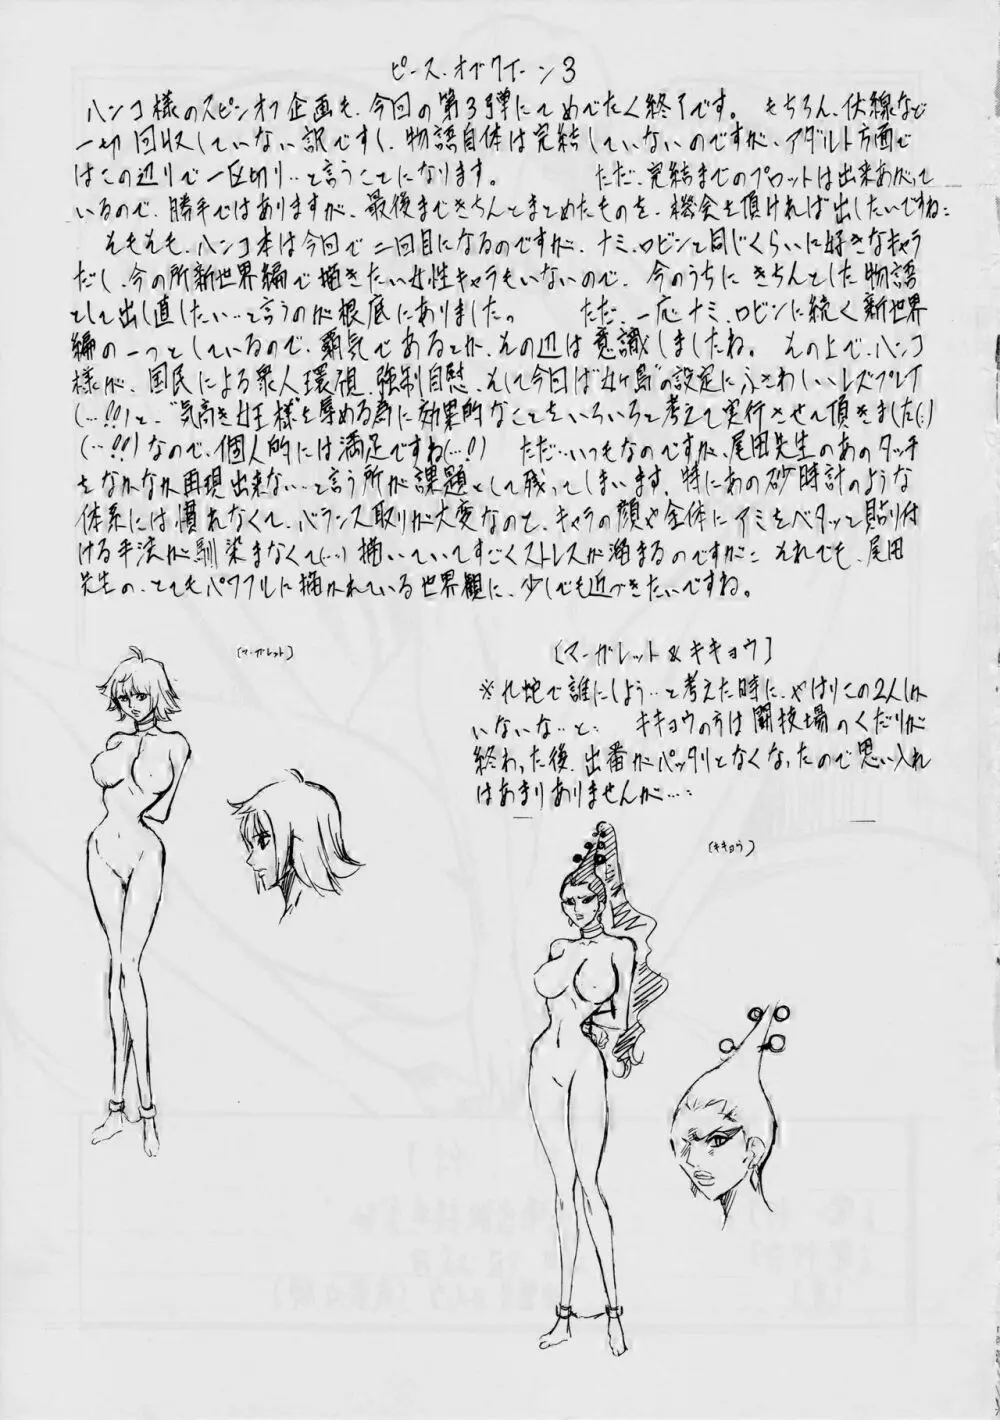 ピース.オブクイーン3
ハンコ様のスピンオフ企画も、今回の第3弾にてめでたく終了です。 もちろん、伏線など
一切回収していない訳ですし、物語自体は完結していないのですが、アダルト方面で
はこの辺りで一区切り…と言うことになります。 ただ、完結までのプロットは出来あがって
いるので、勝手ではありますが、最後まできちんとまとめたものを、機会を頂ければ出したいですね:
そもそも、ハンコ本は今回で二回目になるのですが、ナミ、ロビンと同じくらいに好きなキャラ
だし、今の所新世界編で描きたい女性キャラもいないので、今のうちにきちんとした物語
として出し直したい…と言うのが根底にありました。 ただ、一応ナミ、ロビンに続く新世界
編の一つとしているので、覇気であるとか、その辺は意識しましたね。 その上で、ハンコ
様が、国民による衆人環視、強制自慰、そして今回は“女ヶ島”の設定にふさわしいレズプレイ
(…!!)と、“気高き女王様”を辱める為に効果的なことをいろいろと考えて実行させて頂きました(:)
(…!!)なので、個人的には満足ですね(…!) ただ…いつもなのですが、尾田先生のあのタッチ
をなかなか再現出来ない…と言う所が課題として残ってしまいます。特にあの砂時計のような
体系には慣れなくて、バランス取りが大変なのと、キャラの顔や全体にアミをベタッと貼り付
ける手法が馴染まなくて(…)描いていてすごくストレスが溜まるのですが: それでも、尾田
先生の、とてもパワフルに描かれている世界観に、少しでも近づきたいですね。
[マーガレット]
[マーガレット&キキョウ]
※九蛇で誰にしよう…と考えた時に、やはりこの2人しか
いないな…と: キキョウの方は闘技場のくだりが
終わった後、出番がパッタリとなくなったので思い入れ
はあまりありませんが…:
[キキョウ]